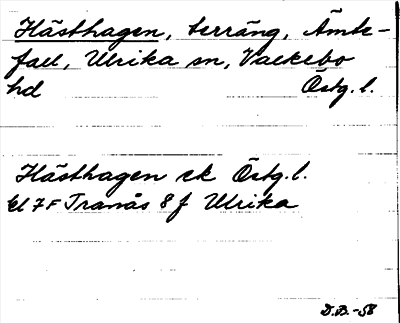 Hästhagen, terräng, Ämte-
fall, Ulrika sn, Valkebo
hd Östg. l.
Hästhagen ek Östg. l.
bl 7F Tranås 8 f Ulrika
D.B.-58